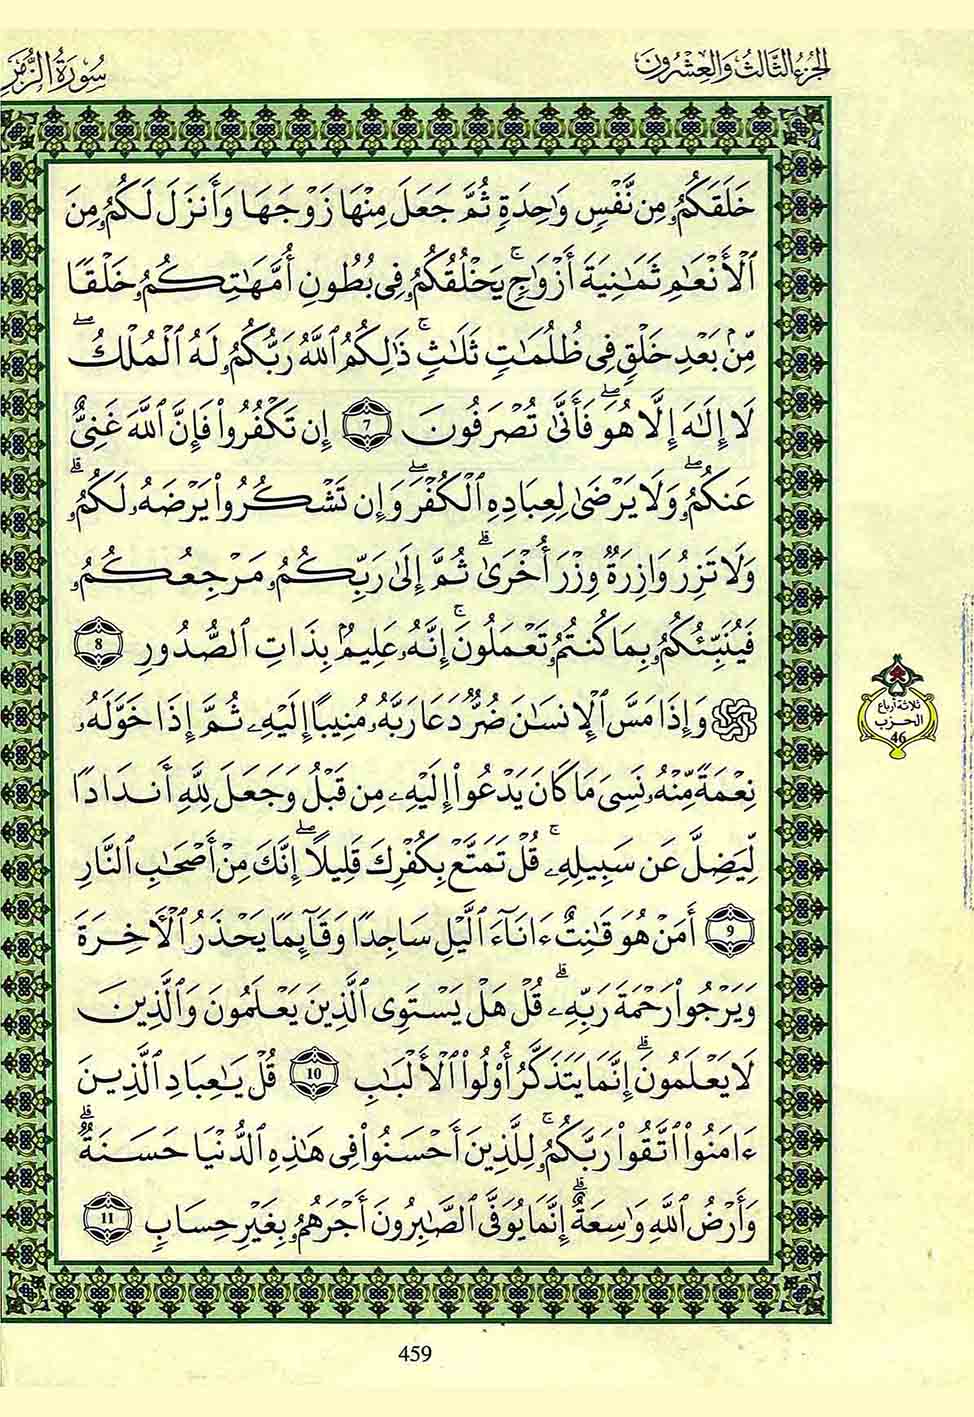 الجزء الثالث والعشرون
سورة الزمر
خَلَقَكُمُۥ مِن نَّفْسٍ وَٰحِدَةٍ ثُمَّ جَعَلَ مِنْهَا زَوْجَهَا وَأَنزَلَ لَكُمُۥ مِنَ
ٱلْأَنْعَٰمِ ثَمَٰنِيَةَ أَزْوَٰجٍ ۚ يَخْلُقُكُمُۥ فِى بُطُونِ أُمَّهَٰتِكُمُۥ خَلْقًا
مِّنۢ بَعْدِ خَلْقٍ فِى ظُلُمَٰتٍ ثَلَٰثٍ ۚ ذَٰلِكُمُ ٱللَّهُ رَبُّكُمُۥ لَهُ ٱلْمُلْكُ ۖ
لَا إِلَٰهَ إِلَّا هُوَ ۖ فَأَنَّىٰ تُصْرَفُونَ 7 إِن تَكْفُرُوا۟ فَإِنَّ ٱللَّهَ غَنِىٌّ
عَنكُمُۥ ۖ وَلَا يَرْضَىٰ لِعِبَادِهِ ٱلْكُفْرَ ۖ وَإِن تَشْكُرُوا۟ يَرْضَهُۥ لَكُمُۥ ۗ
وَلَا تَزِرُ وَازِرَةٌ وِزْرَ أُخْرَىٰ ۗ ثُمَّ إِلَىٰ رَبِّكُمُۥ مَرْجِعُكُمُۥ
فَيُنَبِّئُكُمُۥ بِمَا كُنتُمُۥ تَعْمَلُونَ ۚ إِنَّهُۥ عَلِيمٌۢ بِذَاتِ ٱلصُّدُورِ 8
وَإِذَا مَسَّ ٱلْإِنسَٰنَ ضُرٌّ دَعَا رَبَّهُۥ مُنِيبًا إِلَيْهِۦ ثُمَّ إِذَا خَوَّلَهُۥ
نِعْمَةً مِّنْهُۥ نَسِىَ مَا كَانَ يَدْعُوا۟ إِلَيْهِۦ مِن قَبْلُ وَجَعَلَ لِلَّهِ أَندَادًا
لِّيَضِلَّ عَن سَبِيلِهِۦ ۚ قُلْ تَمَتَّعْ بِكُفْرِكَ قَلِيلًا ۖ إِنَّكَ مِنْ أَصْحَٰبِ ٱلنَّارِ
9 أَمَنْ هُوَ قَٰنِتٌ ءَانَآءَ ٱلَّيْلِ سَاجِدًا وَقَآئِمًا يَحْذَرُ ٱلْأَخِرَةَ
وَيَرْجُوا۟ رَحْمَةَ رَبِّهِۦ ۗ قُلْ هَلْ يَسْتَوِى ٱلَّذِينَ يَعْلَمُونَ وَٱلَّذِينَ
لَا يَعْلَمُونَ ۗ إِنَّمَا يَتَذَكَّرُ أُو۟لُوا۟ ٱلْأَلْبَٰبِ 10 قُلْ يَٰعِبَادِ ٱلَّذِينَ
ءَامَنُوا۟ ٱتَّقُوا۟ رَبَّكُمُۥ ۚ لِلَّذِينَ أَحْسَنُوا۟ فِى هَٰذِهِ ٱلدُّنْيَا حَسَنَةٌ ۗ
وَأَرْضُ ٱللَّهِ وَٰسِعَةٌ ۗ إِنَّمَا يُوَفَّى ٱلصَّٰبِرُونَ أَجْرَهُمُۥ بِغَيْرِ حِسَابٍ 11
ثلاثة أرباع
الحزب
46
459